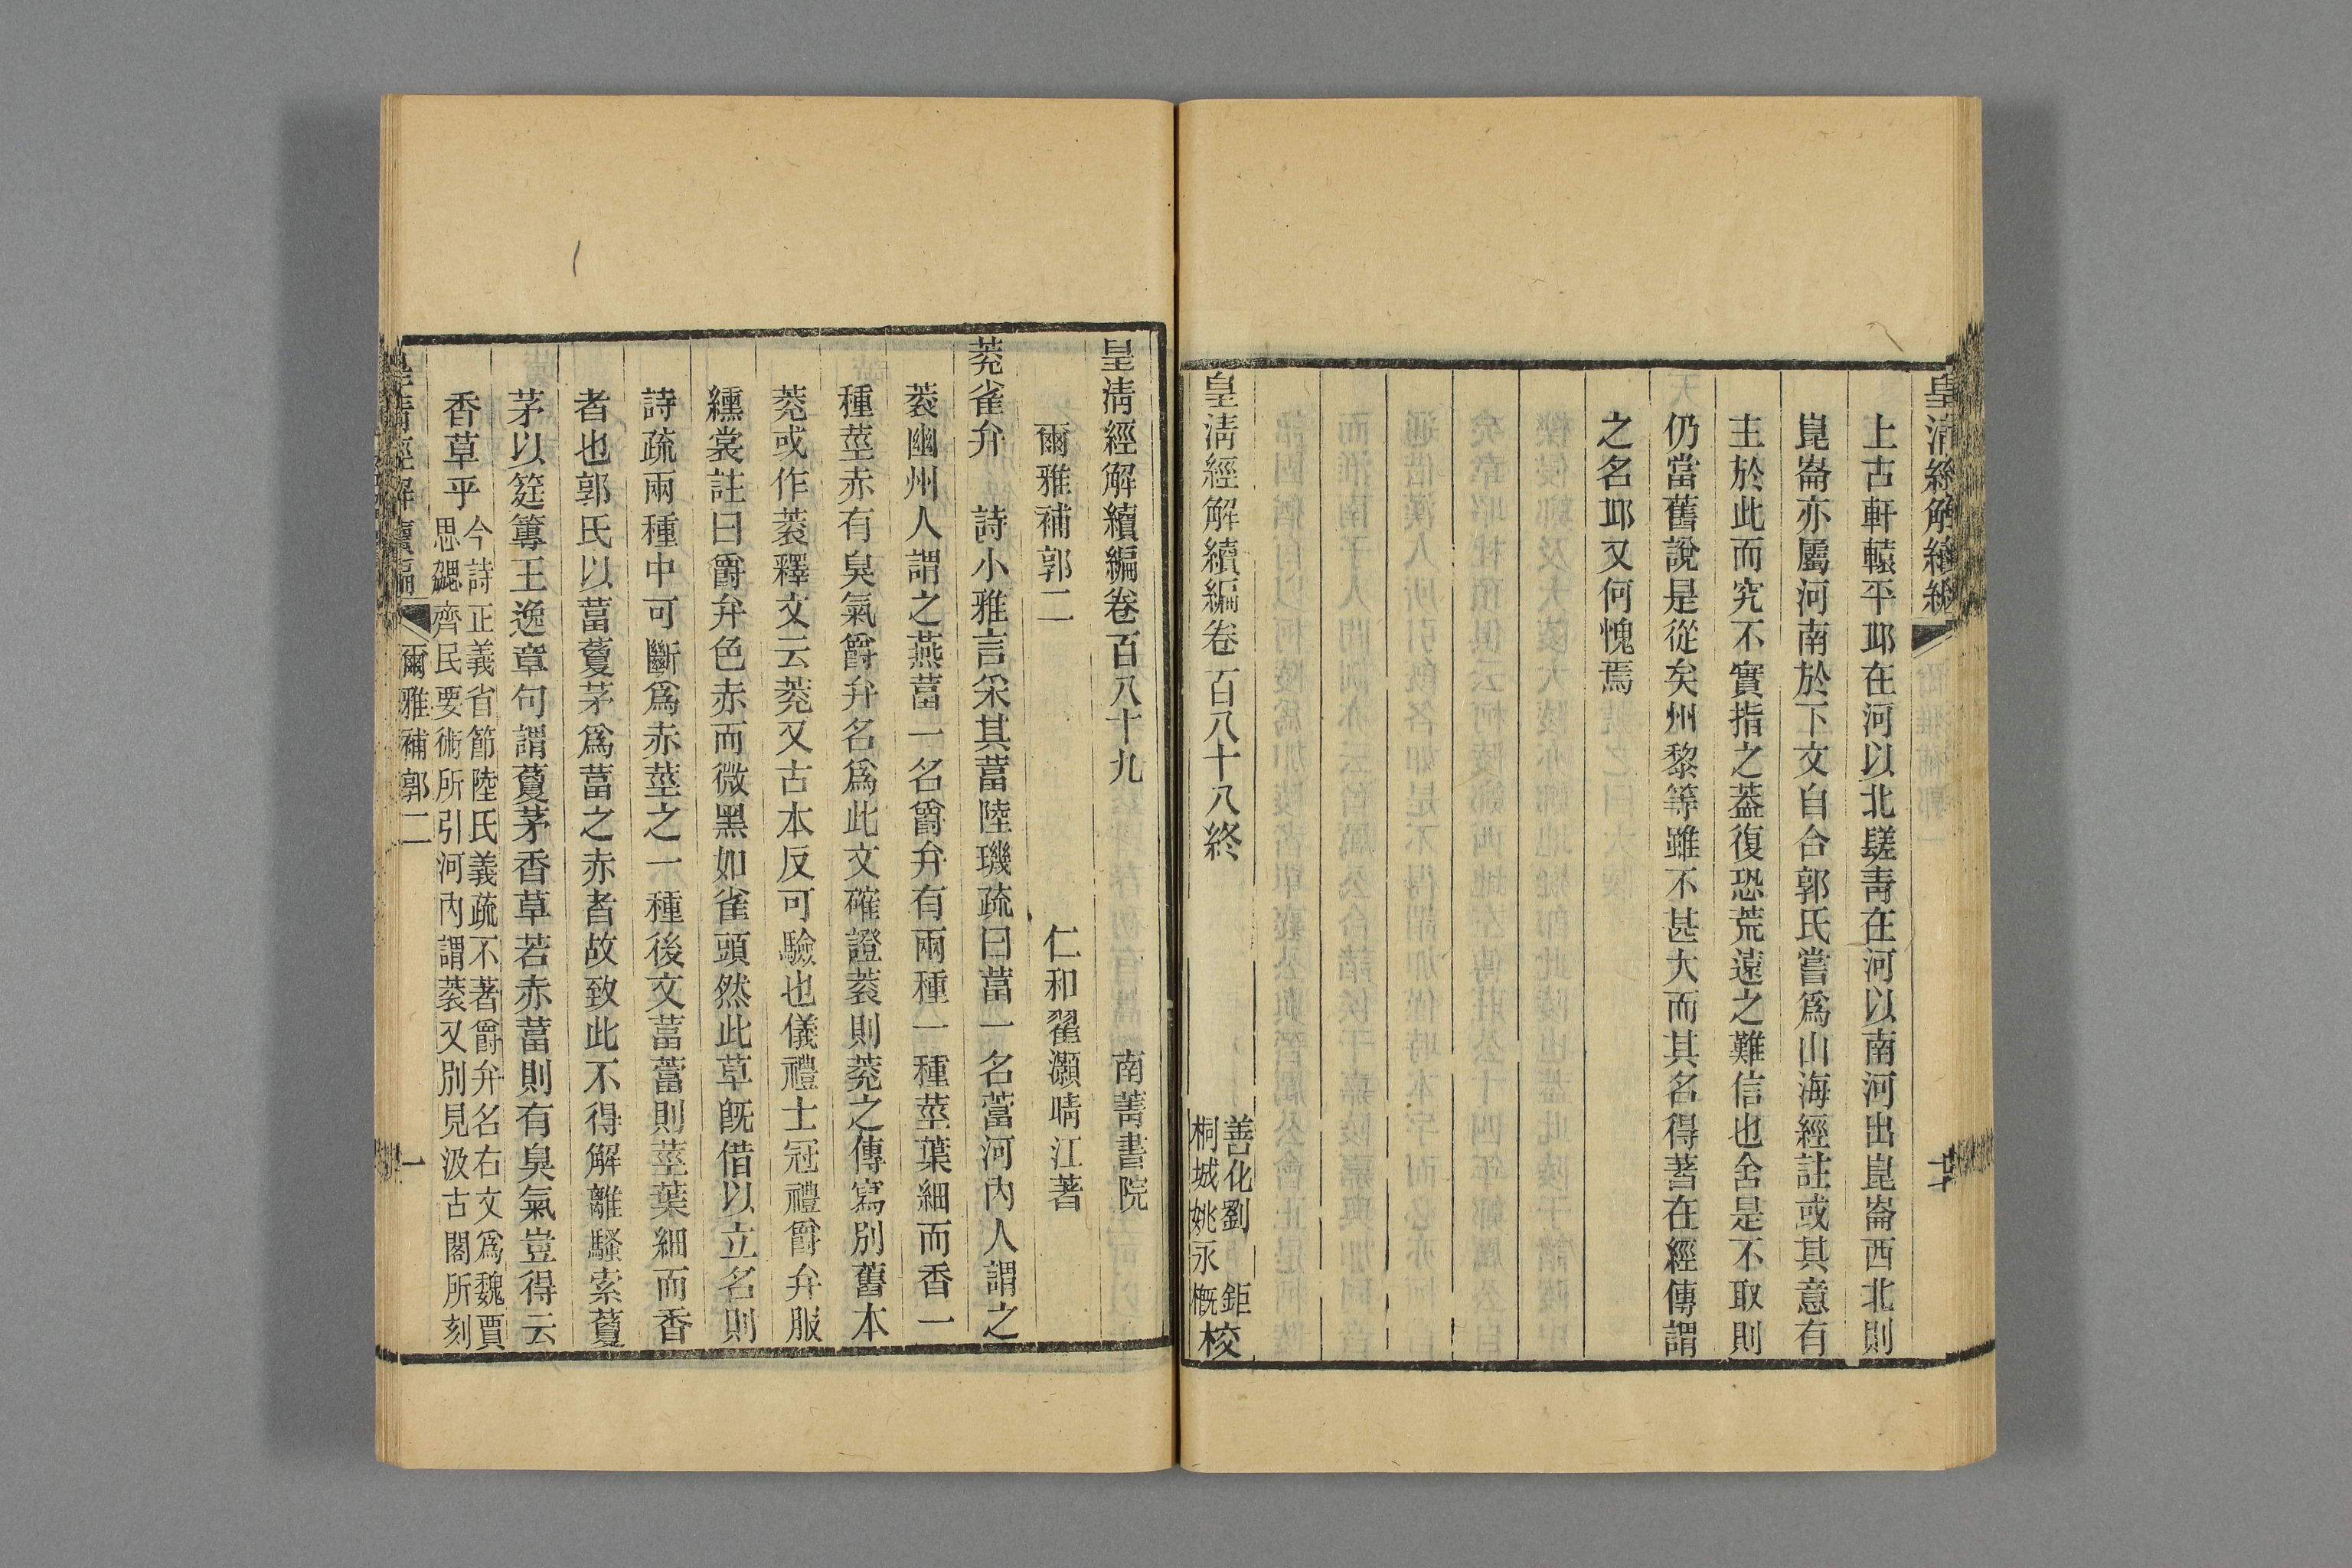 皇清經解續編
上古軒轅平邱在河以北嗟青在河以南河出崑崙西北則
崑崙亦屬河南於下文自合郭氏嘗爲山海經註或其意有
主於此而究不實指之蓋復恐荒遠之難信也舍是不取則
仍當舊說是從矣州黎等雖不甚大而其名得著在經傳謂
之名邱又何愧焉
皇清經解續編卷百八十八終
善化劉鉅
桐城姚永概
校
皇清經解續編卷百八十九
南菁書院
爾雅補郭二
仁和翟灝晴江著
藑雀弁 詩小雅言采其葍陸璣疏曰葍一名藑河內人謂之
蔉幽州人謂之燕葍一名爵弁有兩種一種莖葉細而香一
種莖赤有臭氣爵弁名爲此文確證蔉則藑之傳寫別舊本
藑或作蔉釋文云藑又古本反可驗也儀禮士冠禮爵弁服
纁裳註曰爵弁色赤而微黑如雀頭然此草旣借以立名則
詩疏兩種中可斷爲赤莖之一種後文葍藑則莖葉細而香
者也郭氏以葍藑茅爲葍之赤者故致此不得解離騷索藑
茅以筳篿王逸章句謂藑茅香草若赤葍則有臭氣豈得云
香草乎
今詩正義省節陸氏義疏不著爵弁名右文爲魏賈
思勰齊民要術所引河內謂蔉又別見汲古閣所刻
皇清經解續編
爾雅補郭二
一